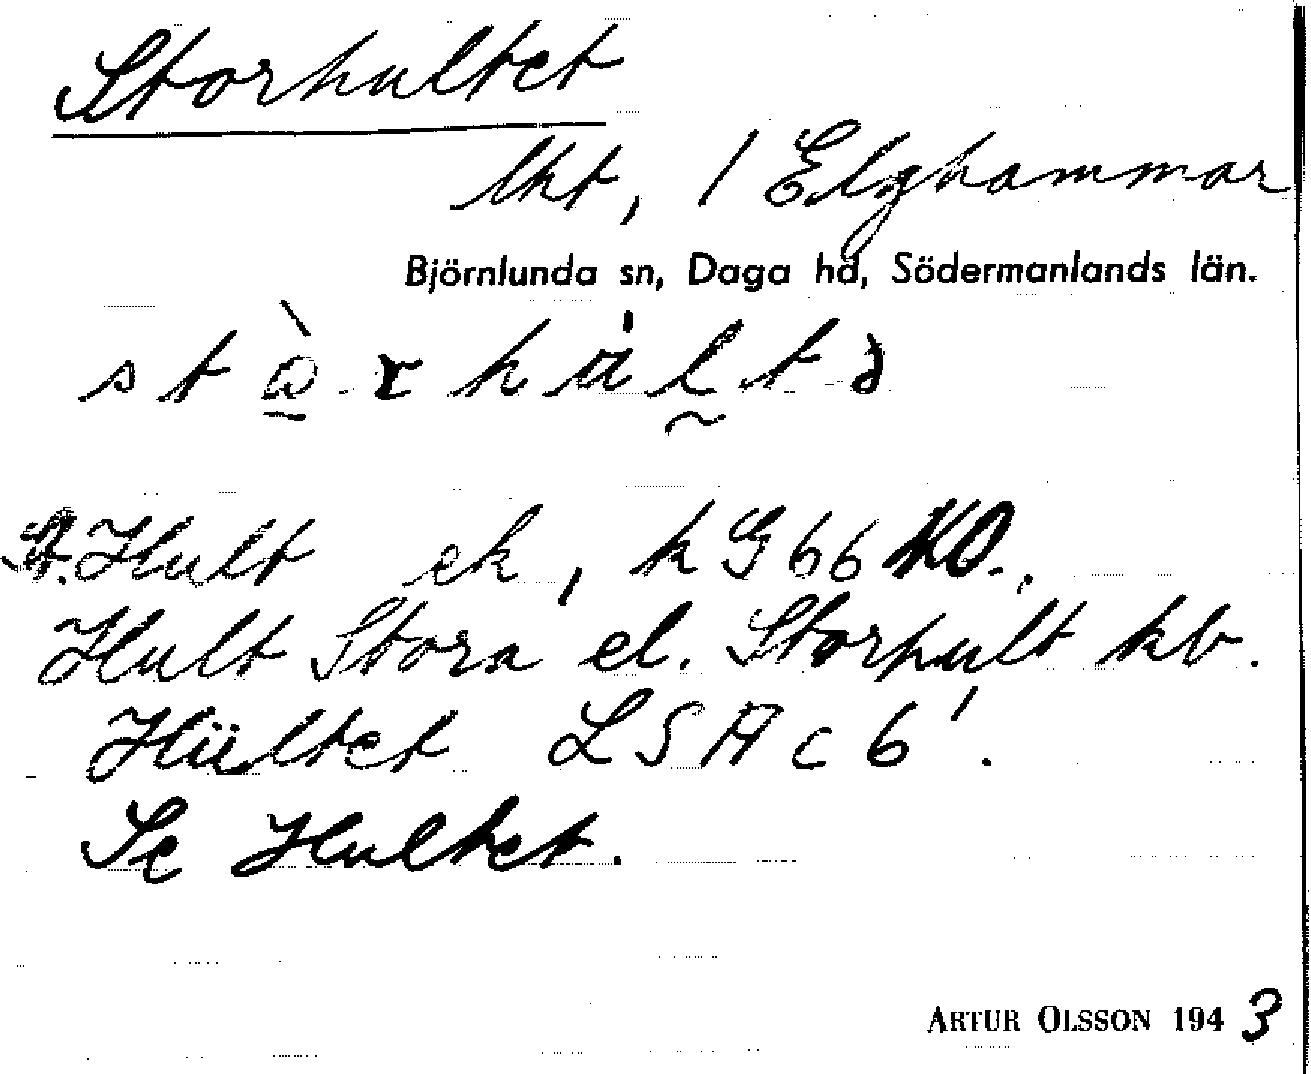 Storhultet
lht, / Elghammar
Björnlunda sn, Daga hd, Södermanlands län.
st
St. Hult ek, k G66 KO.,
Hult Stora el. Storhult kb.
Hültet LSA c 6'.
Se Hultet.
ARTUR OLSSON 1943